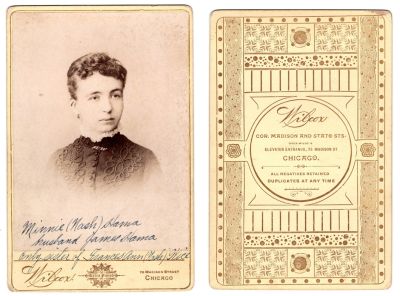 Minnie (Nash) Hama
husband James Hama
only sister of Grancesdun (Nash) Rice
Wilcox
70 MADISON STREET
CHICAGO
Wilcox
COR. MADISON AND STATE STS.
ELEVATOR ENTRANCE, 70 MADISON ST
CHICAGO.
ALL NEGATIVES RETAINED
DUPLICATES AT ANY TIME